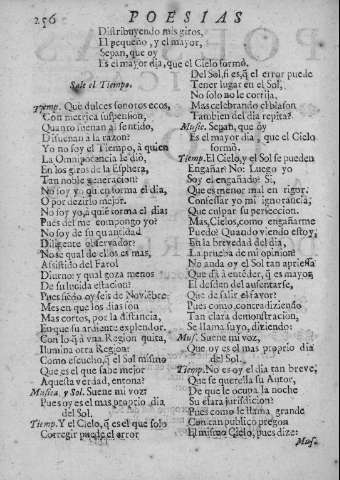 256 POESIAS
Distribuyendo mis giros,
El pequeño, y el mayor,
Sepan, que oy
Es el mayor dia, que el Cielo formò.
Sale el Tiempo.
Tiemp. Que dulces sonoros ecos,
Con metrica suspension,
Quanto suenan al sentido,
Disuenan à la razon?
Yo no soy el Tiempo, à quien
La Omnipotencia le diò,
En los giros de la Esphera,
Tan noble generacion?
No soy yo quien forma el dia,
O por dezirlo mejor,
No soy yo, q̃ que forma el dias
Pues del me compongo yo?
No soy de su quantidad
Diligente observador?
No sè qual de ellos es mas,
Assistido del Farol
Diurno; y qual goza menos
De su lucida estacion?
Pues siẽdo oy seis de Noviẽbre,
Mes en que los dias son
Mas cortos, por la distancia,
En que su ardiente explendor,
Con lo q̃ à vna Region quita,
Ilumina otra Region;
Como escucho, q̃ el Sol mismo
Que es el que sabe mejor
Aquesta verdad, entona?
Musica, y Sol. Suene mi voz;
Pues oy es el mas proprio dia
del Sol.
Tiemp. Y el Cielo, q̃ es el que solo
Corregir puede el error
Del Sol, si es, q̃ el error puede
Tener lugar en el Sol,
No solo no le corrija,
Mas celebrando el blason
Tambien del dia repita?
Music. Sepan, que oy
Es el mayor dia, que el Cielo
formò.
Tiemp. El Cielo, y el Sol se pueden
Engañar? No: Luego yo
Soy el engañado? Si,
Que es menor mal en rigor,
Confessar yo mi ignorancia,
Que culpar su perfeccion.
Mas, Cielos, como engañarme
Puedo? Quando viendo estoy,
En la brevedad del dia,
La prueba de mi opinion?
No anda oy el Sol tan apriessa
Que dà à entẽder, q̃ es mayor
El desden del ausentarse,
Que de salir el favor?
Pues como, contradiziendo
Tan clara demonstracion,
Se llama suyo, diziendo:
Mus. Suene mi voz,
Que oy es el mas proprio dia
del Sol.
Tiemp. No es oy el dia tan breve,
Que se querella su Autor,
De que le ocupa la noche
Su clara jurisdicion?
Pues como le llama grande
Con tan publico pregon
El mismo Cielo, pues dize:
Mus.